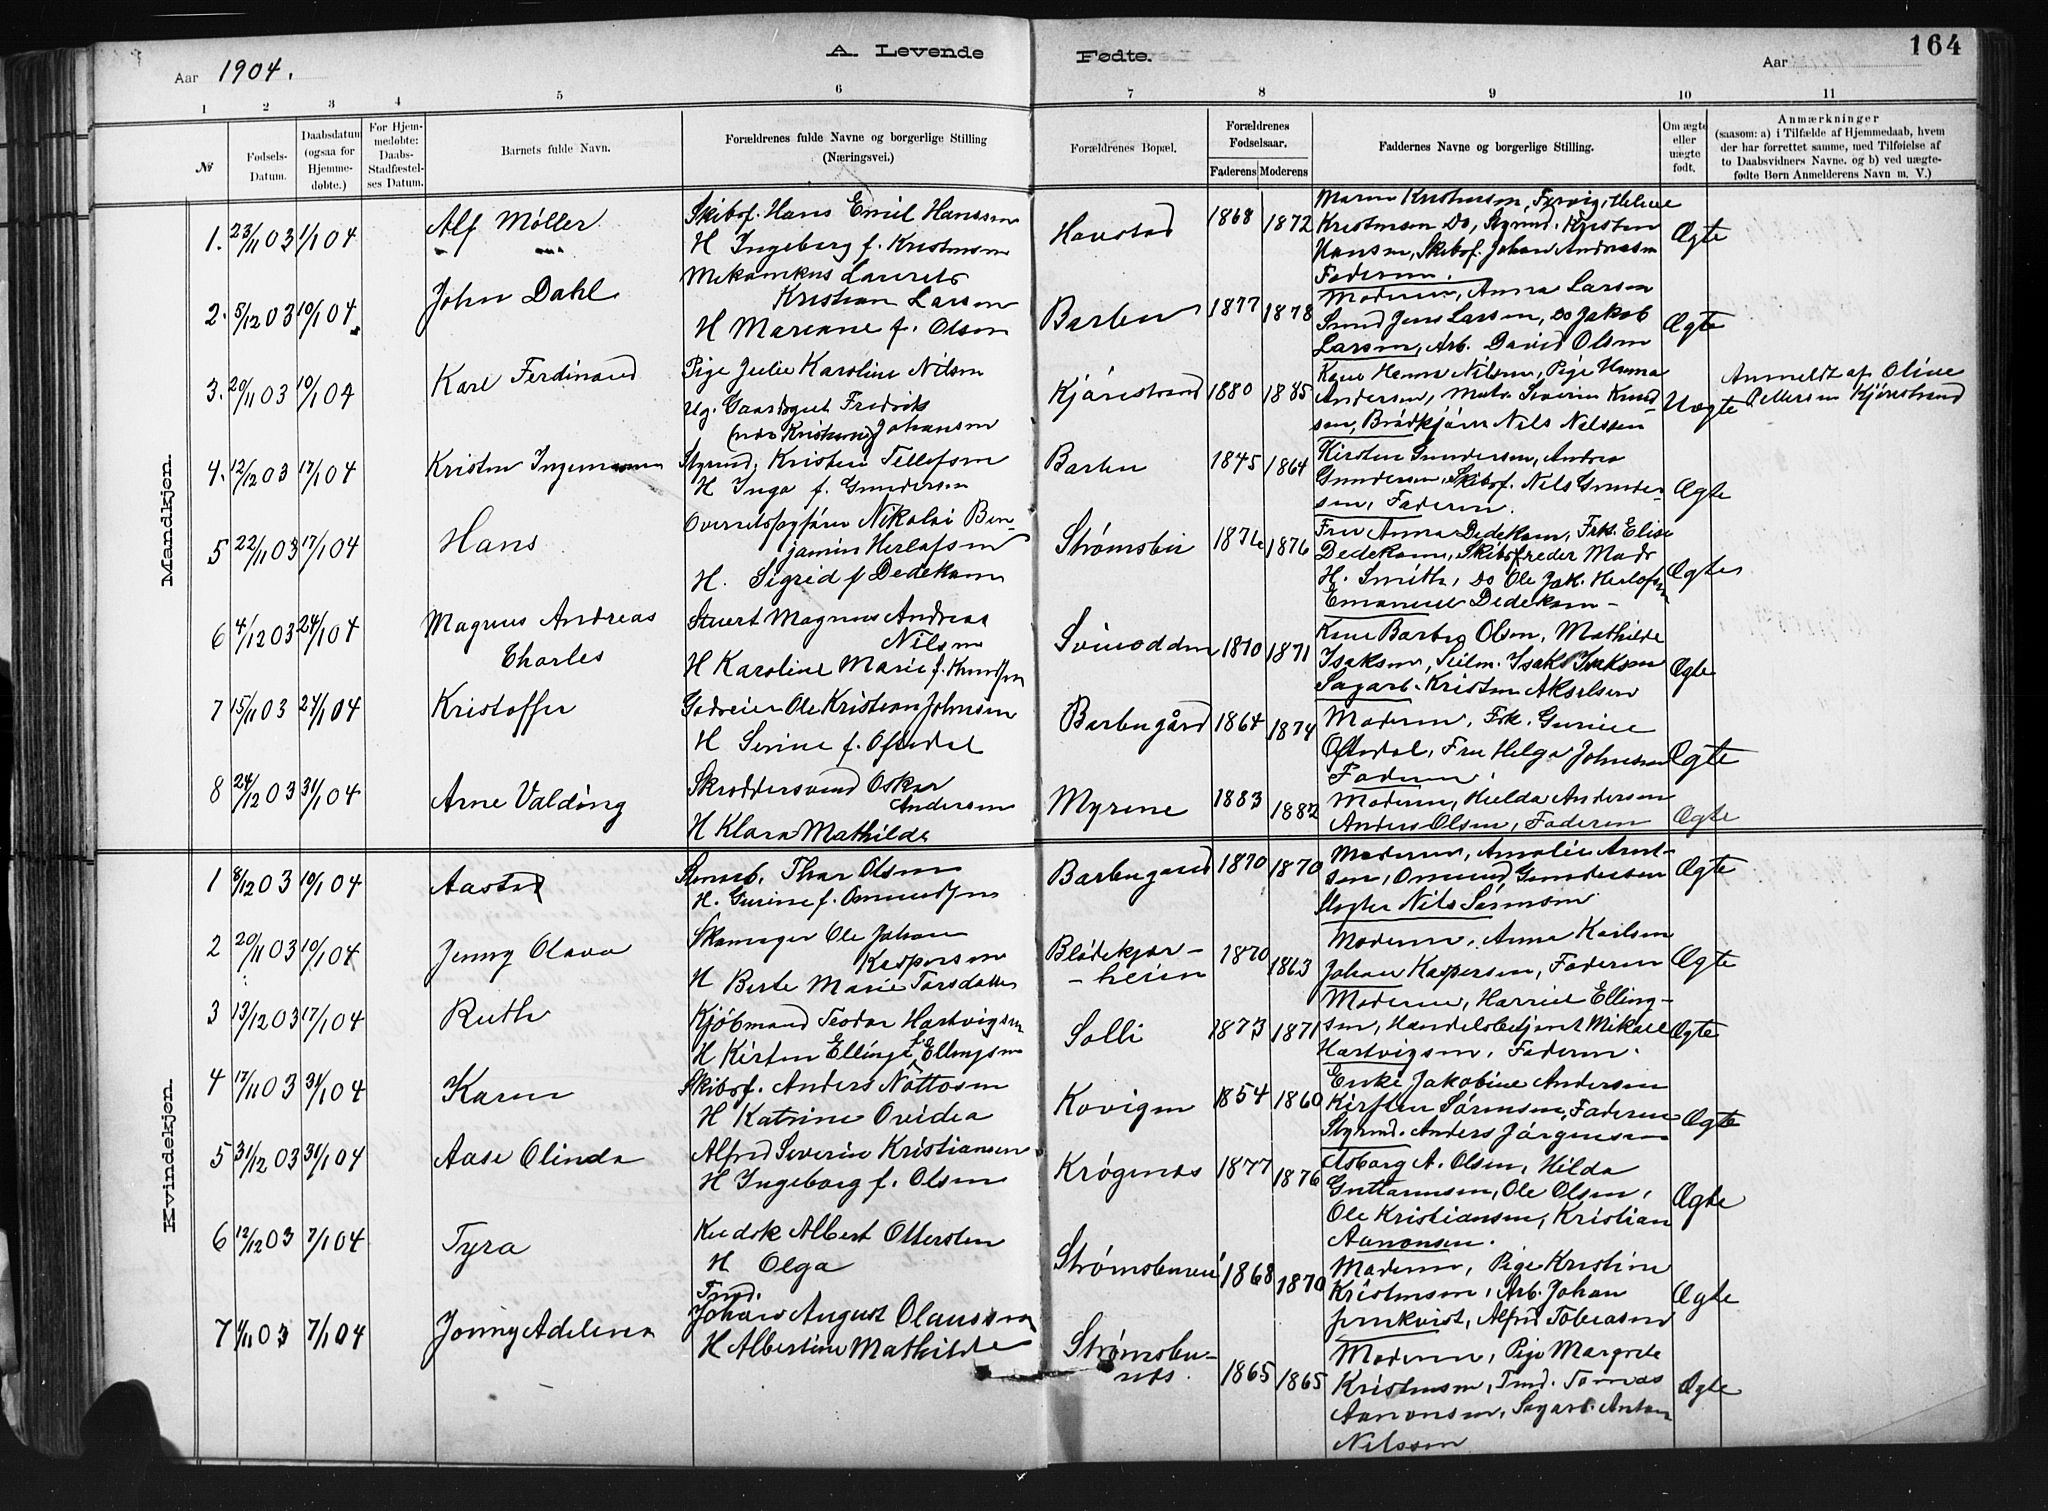 A. Levende Fødte.
164
Aar 1904.
Aar
1 2 3 4 5 6 7 8 9 10 11
№
Fødsels-
Datum.
Daabsdatum
(ogsaa for
Hjemme-
døbte.)
For Hjem-
medøbte:
Daabs-
Stadfæstel-
ses Datum.
Barnets fulde Navn.
Forældrenes fulde Navne og borgerlige Stilling
(Næringsvei.)
Forældrenes Bopæl.
Forældrenes
Fødselsaar.
Faderens Moderens
Faddernes Navne og borgerlige Stilling.
Om ægte
eller
uægte
født.
Anmærkninger
(saasom: a) i Tilfælde af Hjemmedaab, hvem
der har forrettet samme, med Tilføielse af
to Daabsvidners Navne. og b) ved uægte-
fødte Børn Anmelderens Navn m. V.)
Mandkjøn.
1. 23/11 03 1/1 04
Alf Møller
Skibsf. Hans Emil Hanssen
H Ingeberg f. Kristensen
Havstad
1868 1872
Maren Kristensen, Tyrvig, Helene
Kristensen Do, Styrmd. Kristen
Hansen, Skibsf. Johan Andreasen
Faderen.
Ægte
2. 5/12 03 10/1 04
John Dahl
Mekanikus Laurets
Kristian Larsen
H Marenne f. Olsen
Barbu
1877 1878
Moderen, Anna Larsen
Smed Jens Larsen, Do Jakob
Larsen, Arb. David Olsen
Ægte
3. 20/11 03 10/1 04
Karl Ferdinand
Pige Julie Karoline Nilsen
Ug. Gaardsgut Fredrik
Johansen
Kjørrestrand
1880 1885
Kone Hanne Nilsen, Pige Hanna
Andersen, Matr. Severin Knud-
sen, Brødkjører Nils Nilssen
Uægte
Anmeldt af Oline
Pettersen Kjørrestrand
4. 12/12 03 17/1 04
Kristen Ingemann
Styrmd, Kristen Tellefsen
H Inga f. Gundersen
Barbu
1845 1864
Kirsten Gundersen, Andrea
Gundersen, Skibsf. Nils Gunder-
sen, Faderen.
Ægte
5 22/11 03 17/1 04
Hans
Overretssagfører Nikolai Ben-
jamin Herlofsen
H. Sigrid f Dedekam
Strømsbu
1876
Fru Anna Dedekam, Frk. Elise
Dedekam, Skibsreder Mads
H. Smith, Do Ole Jak. Herlofsn
Emanuel Dedekam -
Ægte
6 4/12 03 24/1 04
Magnus Andreas
Charles
Stuert Magnus Andreas
Nilsen
H Karoline Marie f. Knudsen
Svinodden
1870 1871
Kone Barbro Olsen, Mathilde
Isaksen, Seilm. Isak Isaksen
Sagarb. Kristen Akselsen
Ægte
7 15/11 03 24/1 04
Kristoffer
Gadveier Ole Kristian Johnsen
H Serine f. Oftedal
Barbugård
1864 1874
Moderen, Frk. Gurine
Oftedal, Fru Helga Johnsen
Faderen.
Ægte
8 24/12 03 31/1 04
Arne Valding
Skræddersvend Oskar
Andersen
H Klara Mathilde
Myrene
1883 1882
Moderen, Hulda Andersen
Anders Olsen, Faderen
Ægte
Kvindekjøn.
1 8/12 03 10/1 04
Aasta
Thor Olsen
H. Gurine f. Omundsen
Barbugaard
1870 1870
Moderen, Amalie Arnt-
sen, Omund Gundersen
Nils Sørensen
Ægte
2 20/11 03 10/1 04
Jenny Olava
Skomager Ole Johan
Kaspersen
H Berte Marie Tarsdatter
Blødekjær-
- heien
1870 1863
Moderen, Anna Karlsen
Johan Kaspersen, Faderen
Ægte
3 13/12 03 17/1 04
Ruth
Kjøbmand Teodor Hartvigsen
H Kirsten Ellinge f. Ellingsen
Solli
1873 1871
Moderen, Harriet Elling-
sen, Handelsbetjent Mikael
Hartvigsen, Faderen.
Ægte
4 17/11 03 31/1 04
Karen
Skibsf. Anders Nöttosen
H Katrine Ovidea
Kovigen
1854 1860
Enke Jakobine Andersen
Kirsten Sørensen, Faderen
Styrmd. Anders Jørgensen
Ægte
5 31/12 03 31/1 04
Aase Olinda
Alfred Severin Kristiansen
H Ingeborg f. Olsen
Krøgenes
1877 1876
Asborg A. Olsen, Hilda
Guttormsen, Ole Olsen,
Ole Kristiansen, Kristian
Aanonsen.
Ægte
6 12/12 03 7/1 04
Tyra
Albert Ottersten
H Olga
Strømsbuneset
1868 1870
Moderen, Pige Kristine
Kristensen, Arb. Johan
Jernkvist, Alfred Tobiasen
Ægte
7 4/11 03 7/1 04
Jenny Adelina
Tmd.
Johan August Olaussen
H Albertine Mathilde
Strømsbu-
nes.
1865 1865
Moderen, Pige Margrete
Kristensen, Tmd. Tomas
Aanonsen, Sagarb. Anton
Nilssen
Ægte